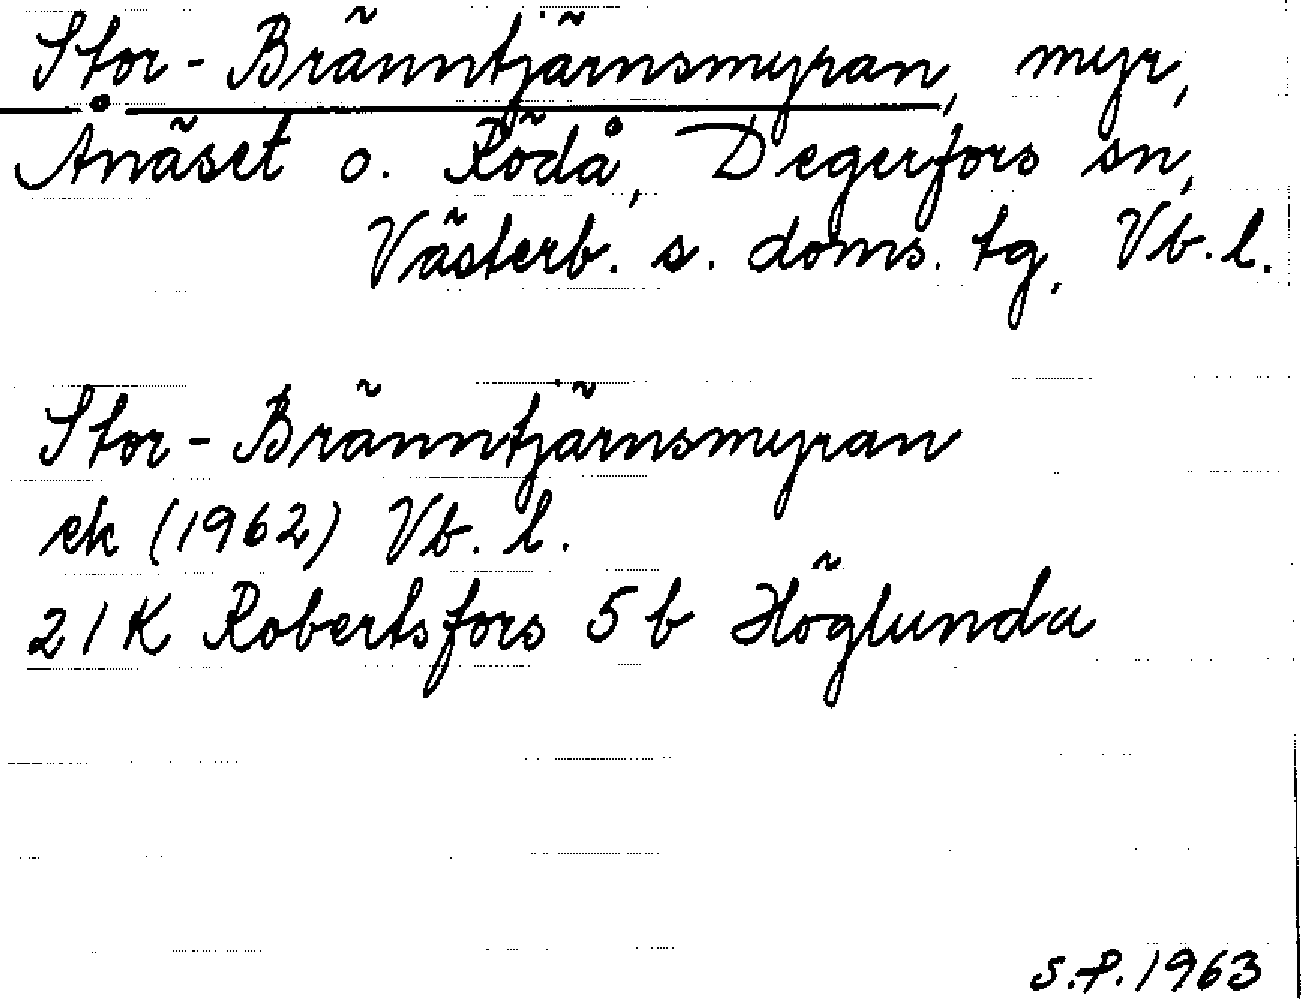 Stor-Bränntjärnsmyran, myr,
Ånäset o. Rödå, Degerfors sn,
Västerb. s. doms. tg, Vb. l.
Stor-Bränntjärnsmyran
ek (1962) Vb. l.
21K Robertsfors 5b Höglunda
S.P. 1963